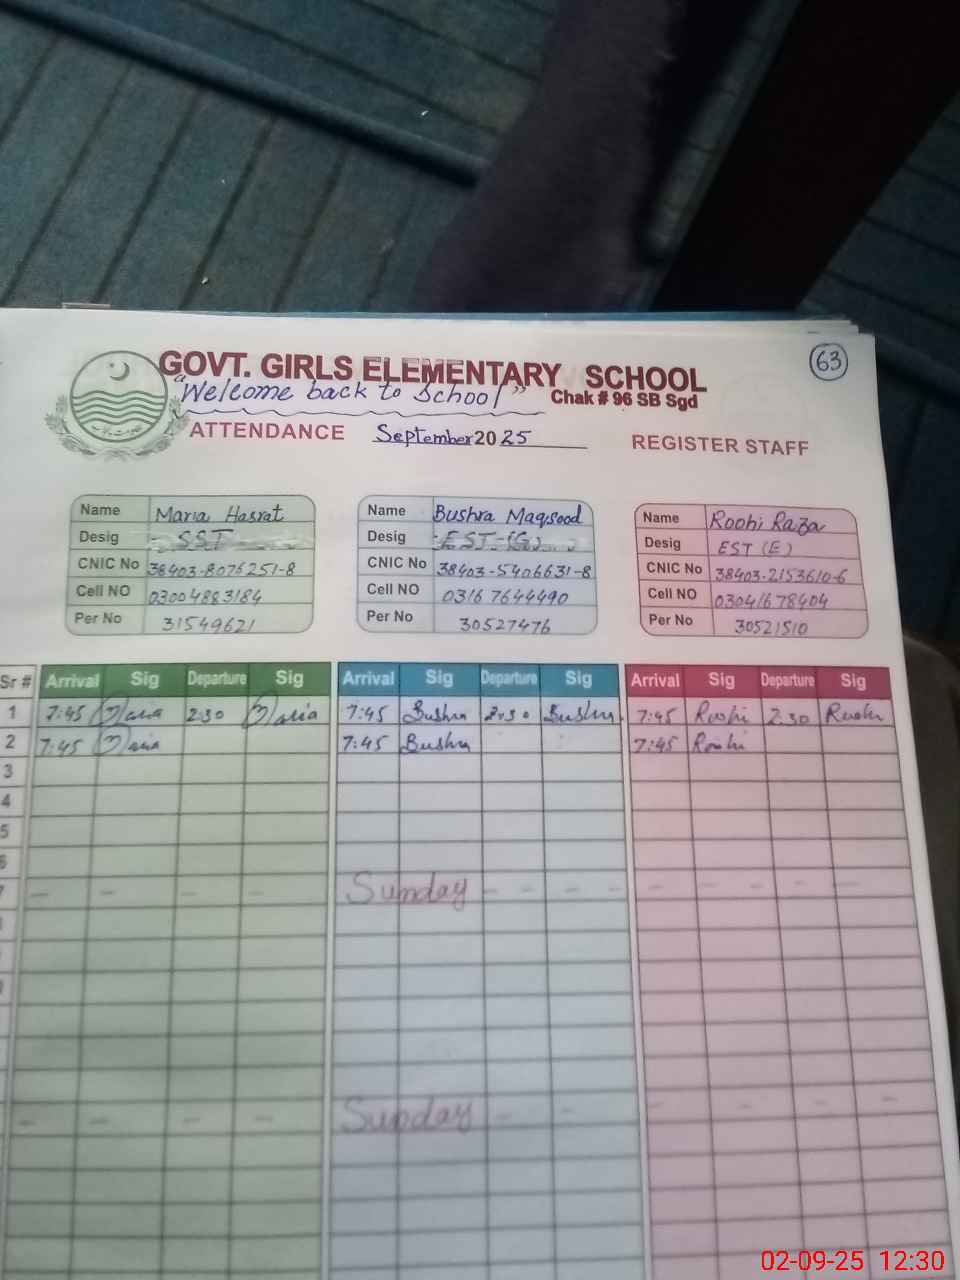 GOVT. GIRLS ELEMENTARY SCHOOL
63
"Welcome back to School"
Chak # 96 SB Sgd
ATTENDANCE September 2025 REGISTER STAFF
Name Maria Hasrat
Desig SST
CNIC No 38403-8076251-8
Cell NO 03004883184
Per No 31549621
Name Bushra Maqsood
Desig EST-(G)
CNIC No 38403-5406631-8
Cell NO 0316 7644490
Per No 30527476
Name Roohi Raza
Desig EST (E)
CNIC No 38403-2153610-6
Cell NO 03041678404
Per No 30521510
Sr # Arrival Sig Departure Sig Arrival Sig Departure Sig Arrival Sig Departure Sig
1 7:45 Maria 2:30 Maria 7:45 Bushra 2:30 Bushra 7:45 Roohi 2:30 Roohi
2 7:45 Maria 7:45 Bushra 7:45 Roohi
3
4
5
6
7 — — — — Sunday — — — — — — — —
— — — — Sunday — — — — — —
02-09-25 12:30